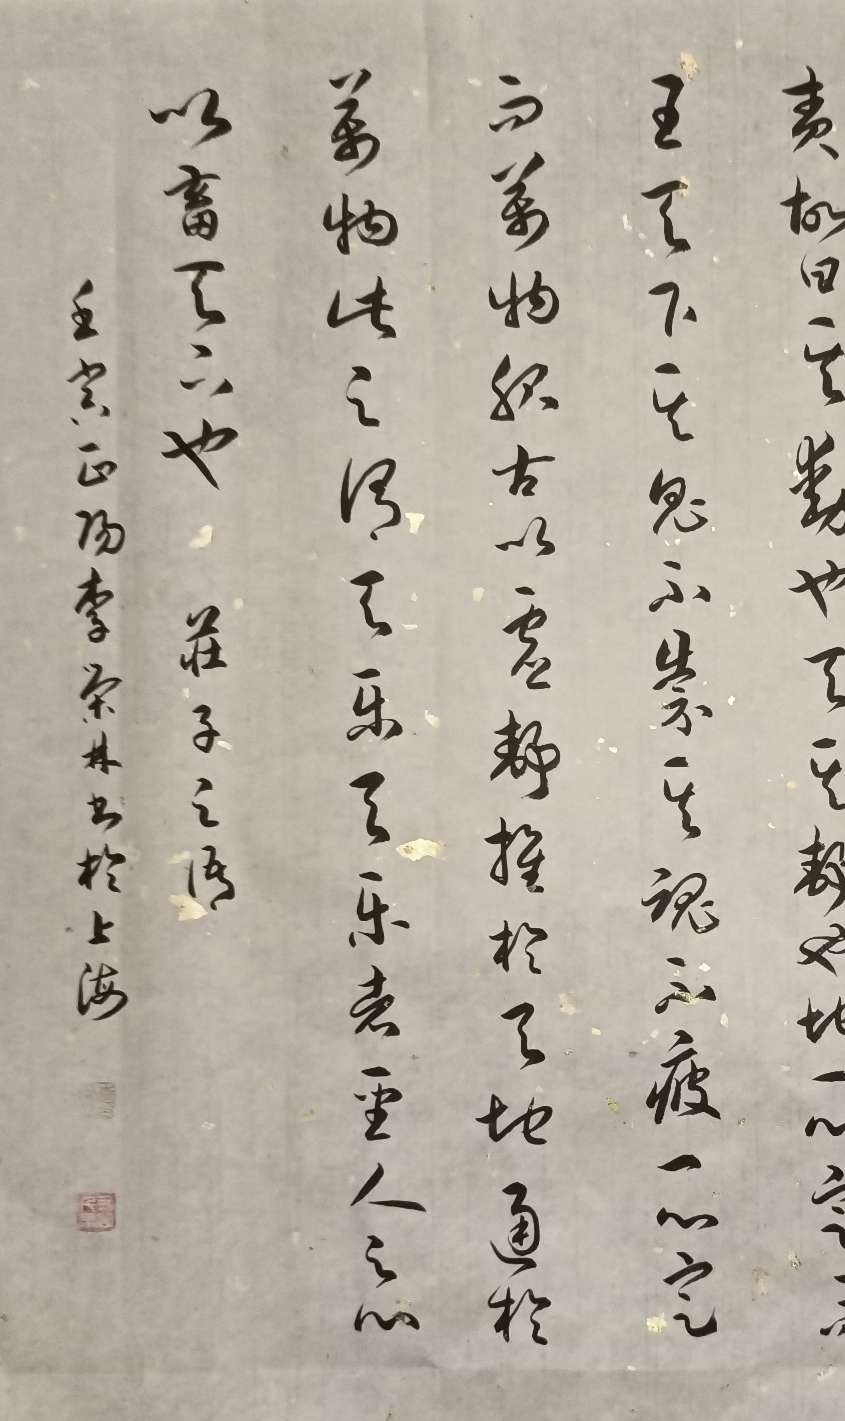 責故曰其動也天其靜也地一心定而
王天下其鬼不祟其魂不疲一心定
而萬物服古以虛靜推於天地通於
萬物此之謂天樂天樂者聖人之心
以畜天下也 莊子之語
壬寅正陽李榮林書於上海